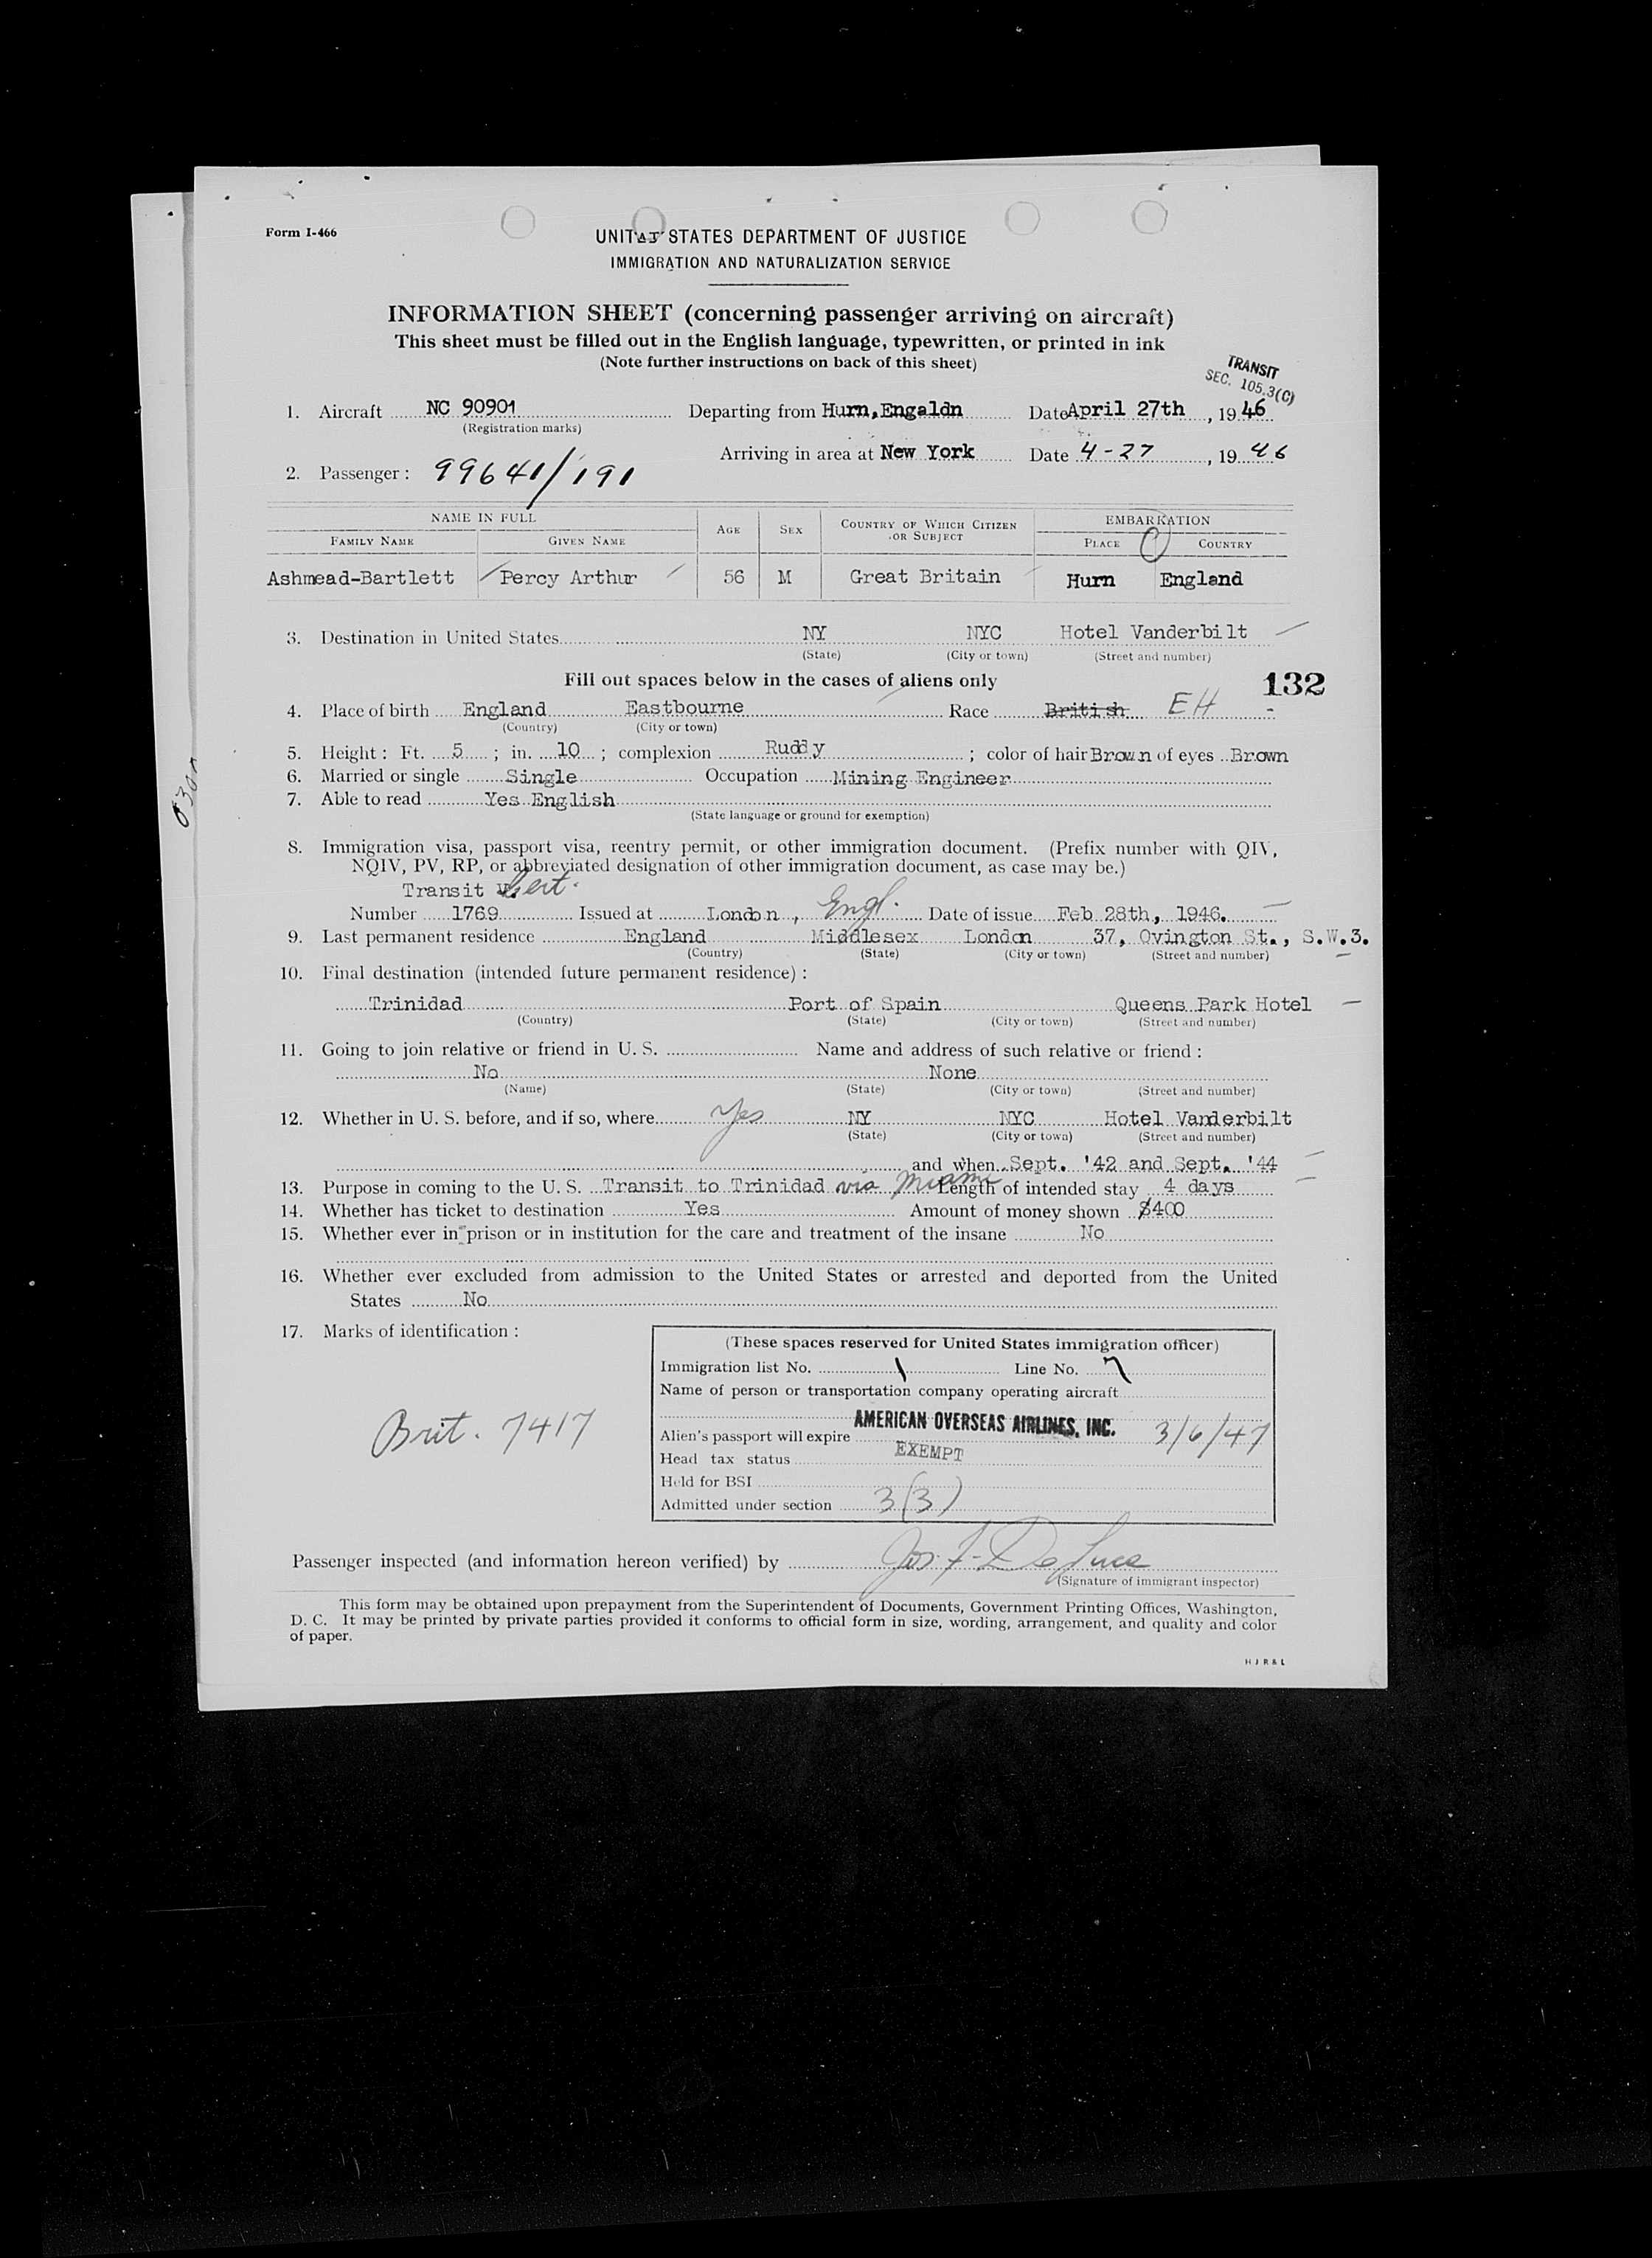 Form I-466
UNITED STATES DEPARTMENT OF JUSTICE
IMMIGRATION AND NATURALIZATION SERVICE
INFORMATION SHEET (concerning passenger arriving on aircraft)
This sheet must be filled out in the English language, typewritten, or printed in ink
(Note further instructions on back of this sheet)
TRANSIT
SEC. 105.3(C)
1. Aircraft NC 90901 Departing from Hurn,Engaldn Date April 27th, 1946
(Registration marks)
Arriving in area at New York Date 4-27, 1946
2. Passenger: 99641/191
NAME IN FULL AGE SEX COUNTRY OF WHICH CITIZEN OR SUBJECT EMBARKATION
FAMILY NAME GIVEN NAME PLACE COUNTRY
Ashmead-Bartlett Percy Arthur 56 M Great Britain Hurn England
3. Destination in United States NY NYC Hotel Vanderbilt
(State) (City or town) (Street and number)
Fill out spaces below in the cases of aliens only 132
4. Place of birth England Eastbourne Race British EH
(Country) (City or town)
5. Height: Ft. 5; in. 10; complexion Ruddy; color of hair Brown of eyes Brown
6. Married or single Single Occupation Mining Engineer
7. Able to read Yes English
(State language or ground for exemption)
8. Immigration visa, passport visa, reentry permit, or other immigration document. (Prefix number with QIV,
NQIV, PV, RP, or abbreviated designation of other immigration document, as case may be.)
Transit Cert.
Number 1769 Issued at London, Engl. Date of issue Feb 28th, 1946.
9. Last permanent residence England Middlesex London 37, Ovington St., S.W.3.
(Country) (State) (City or town) (Street and number)
10. Final destination (intended future permanent residence):
Trinidad Port of Spain Queens Park Hotel
(Country) (State) (City or town) (Street and number)
11. Going to join relative or friend in U. S. Name and address of such relative or friend:
No None
(Name) (State) (City or town) (Street and number)
12. Whether in U. S. before, and if so, where Yes NY NYC Hotel Vanderbilt
(State) (City or town) (Street and number)
and when Sept. '42 and Sept. '44
13. Purpose in coming to the U. S. Transit to Trinidad via Miami Length of intended stay 4 days
14. Whether has ticket to destination Yes Amount of money shown $400
15. Whether ever in prison or in institution for the care and treatment of the insane No
16. Whether ever excluded from admission to the United States or arrested and deported from the United
States No
17. Marks of identification:
Brit. 7417
(These spaces reserved for United States immigration officer)
Immigration list No. 1 Line No. 7
Name of person or transportation company operating aircraft
AMERICAN OVERSEAS AIRLINES, INC.
Alien's passport will expire 3/6/47
Head tax status EXEMPT
Held for BSI
Admitted under section 3(3)
Passenger inspected (and information hereon verified) by Jos. F. DeLuca
(Signature of immigrant inspector)
This form may be obtained upon prepayment from the Superintendent of Documents, Government Printing Offices, Washington,
D. C. It may be printed by private parties provided it conforms to official form in size, wording, arrangement, and quality and color
of paper.
H J R & L